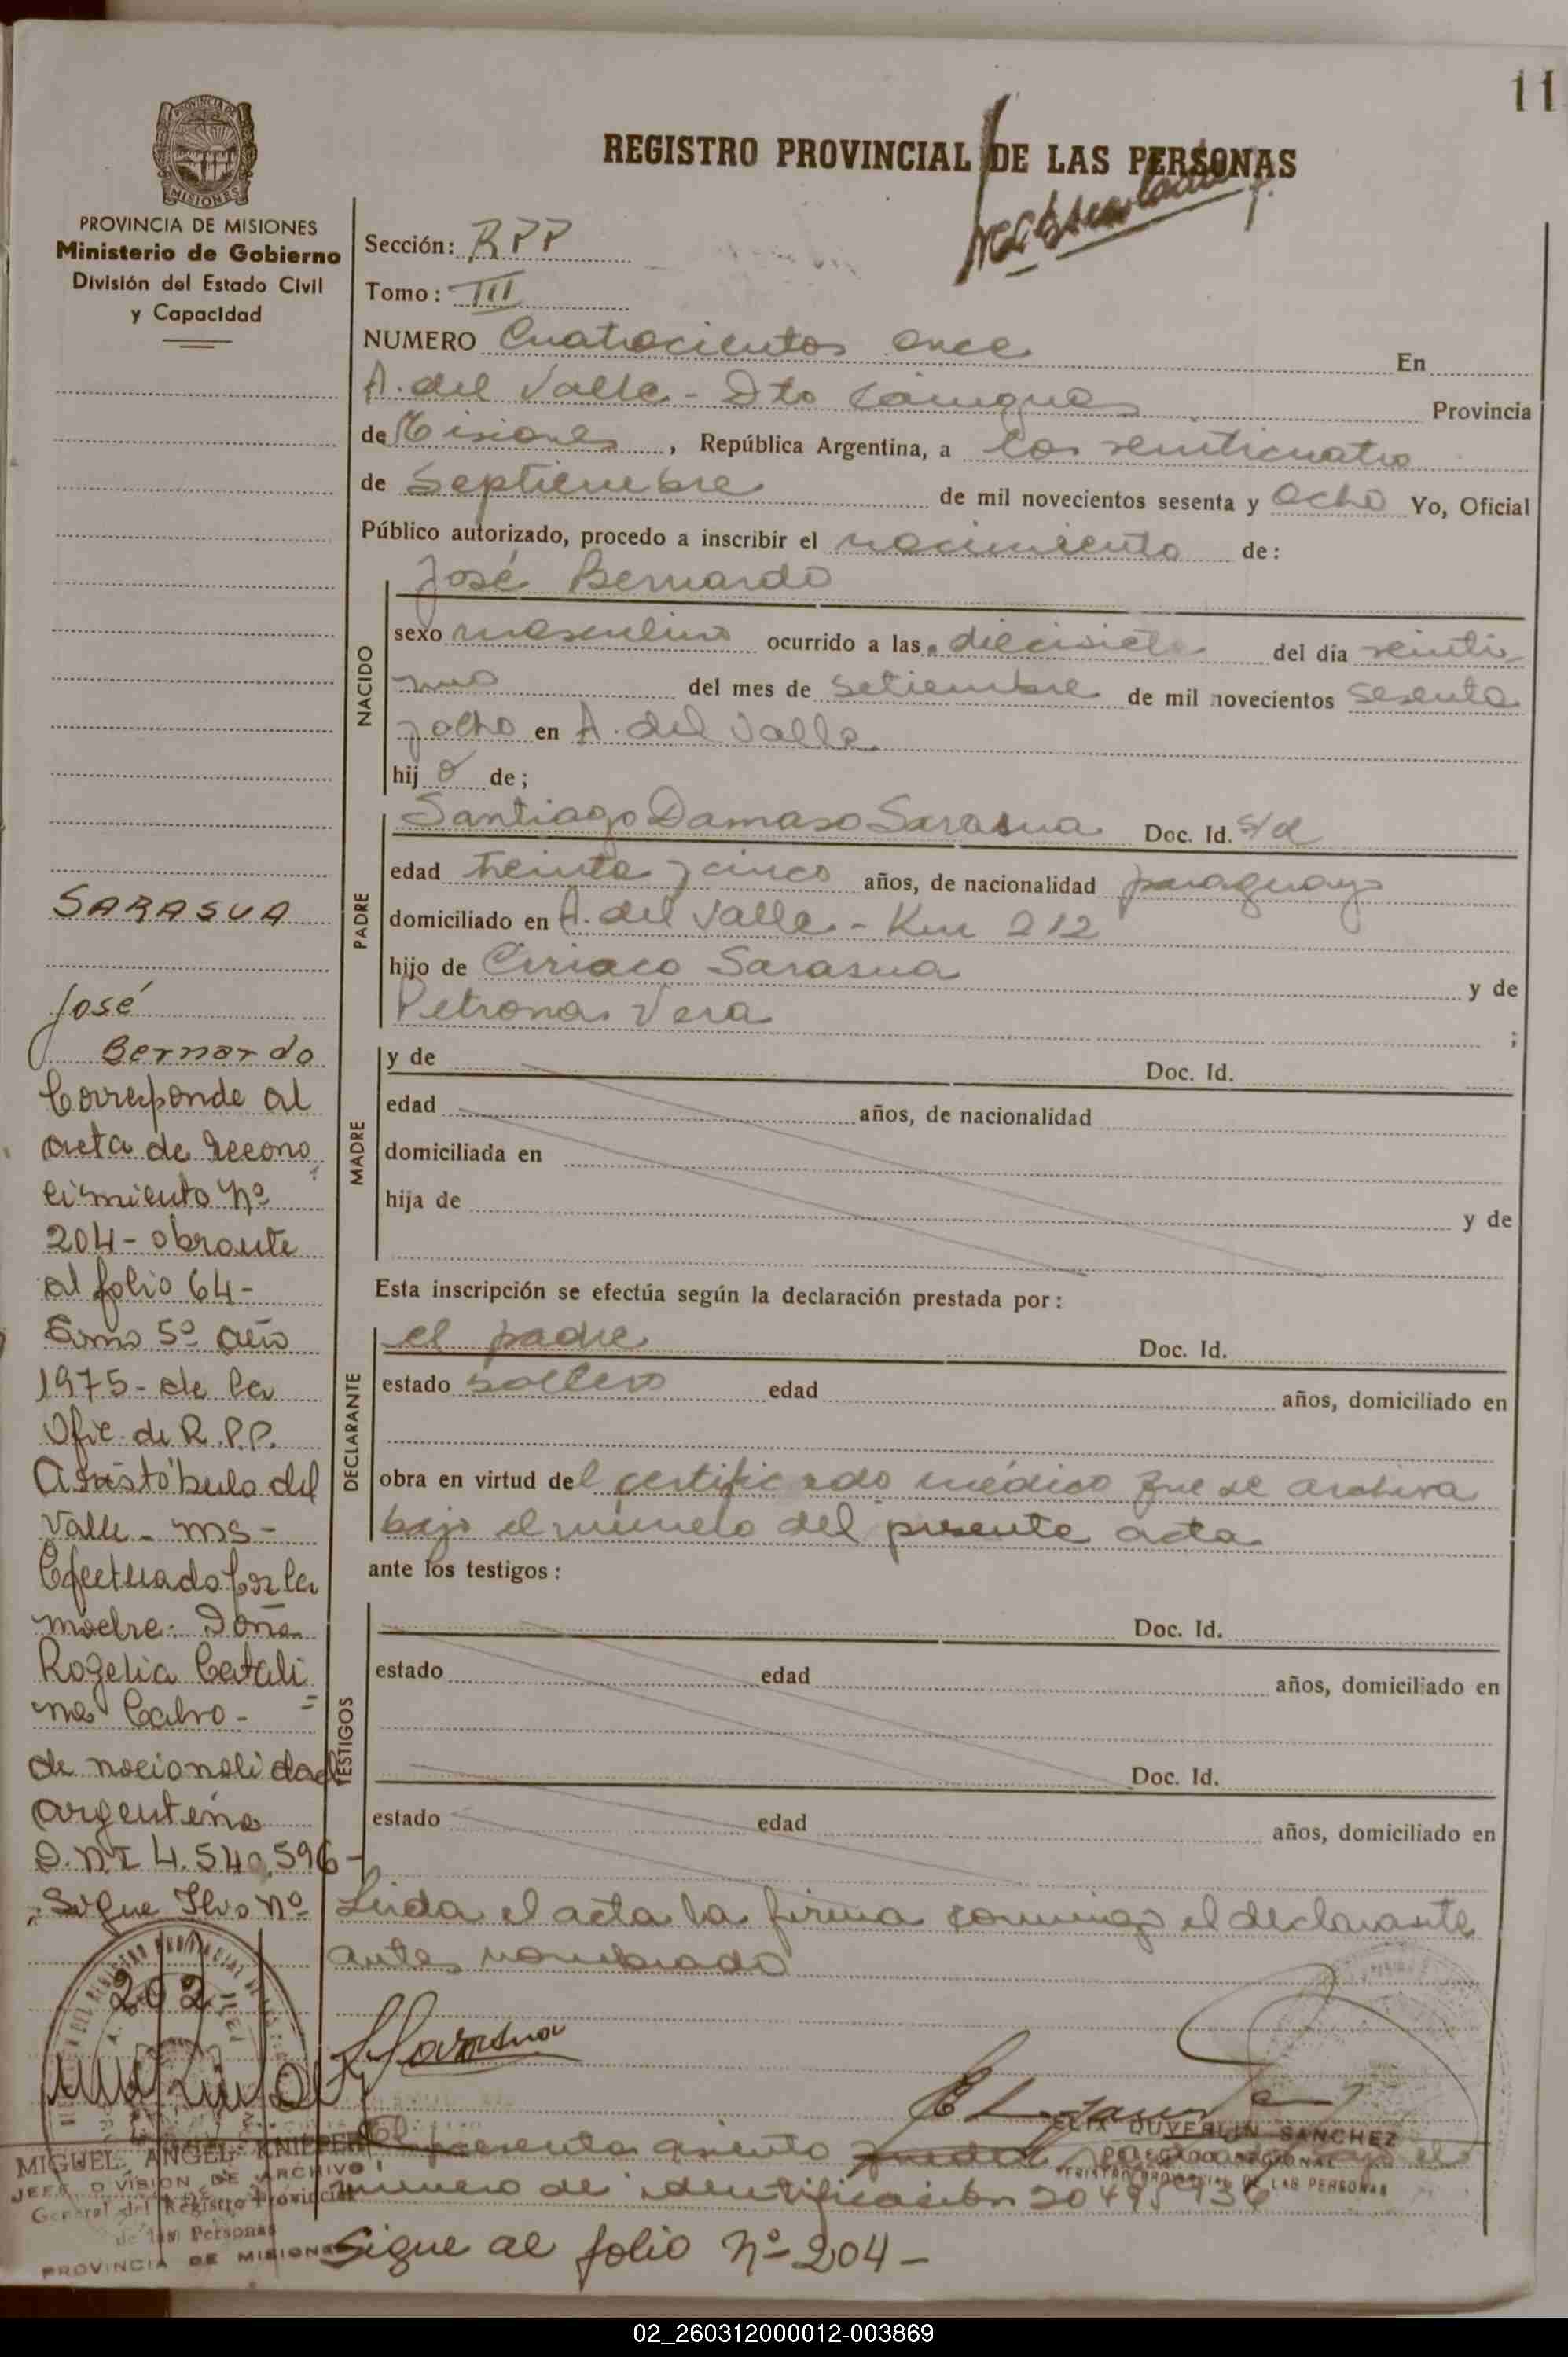 11
REGISTRO PROVINCIAL DE LAS PERSONAS
PROVINCIA DE MISIONES
Ministerio de Gobierno
División del Estado Civil
y Capacidad
Sección: RPP
Tomo: III
NUMERO Cuatrocientos once En
A. del Valle - Dto Cainguas Provincia
de Misiones, República Argentina, a los veinticuatro
de Septiembre de mil novecientos sesenta y ocho Yo, Oficial
Público autorizado, procedo a inscribir el nacimiento de:
José Bernardo
NACIDO
sexo masculino ocurrido a las diecisiete del día veinti
uno del mes de setiembre de mil novecientos sesenta
y ocho en A. del Valle
hijo de;
PADRE
Santiago Damaso Sarasua Doc. Id. s/d
edad treinta y cinco años, de nacionalidad paraguayo
domiciliado en A. del Valle - Km 212
hijo de Ciriaco Sarasua y de
Petrona Vera ;
MADRE
y de Doc. Id.
edad años, de nacionalidad
domiciliada en
hija de y de
Esta inscripción se efectúa según la declaración prestada por:
DECLARANTE
el padre Doc. Id.
estado soltero edad años, domiciliado en
obra en virtud del certificado médico que se archiva
bajo el número del presente acta
ante los testigos:
TESTIGOS
Doc. Id.
estado edad años, domiciliado en
Doc. Id.
estado edad años, domiciliado en
Leida el acta la firma conmigo el declarante
antes nombrado
SARASUA
José
Bernardo
Corresponde al
acta de recono
cimiento Nº
204 - obrante
al folio 64 -
Tomo 5º año
1975 - de la
Ofic. de R.P.P.
Aristóbulo del
Valle - Ms -
Efectuado por la
madre: Doña
Rogelia Catali
na Calvo -
de nacionalidad
argentina
D.N.I 4.540.596 -
Sigue Nº
202
MIGUEL ANGEL KNIPPER
JEFE DIVISION DE ARCHIVO
General del Registro Provincial
de las Personas
PROVINCIA DE MISIONES
ELIX DUVERLIN SANCHEZ
DELEGADO REGIONAL
REGISTRO PROVINCIAL DE LAS PERSONAS
El presente asiento el
número de identificación 20495936
Sigue al folio Nº 204 -
02_260312000012-003869